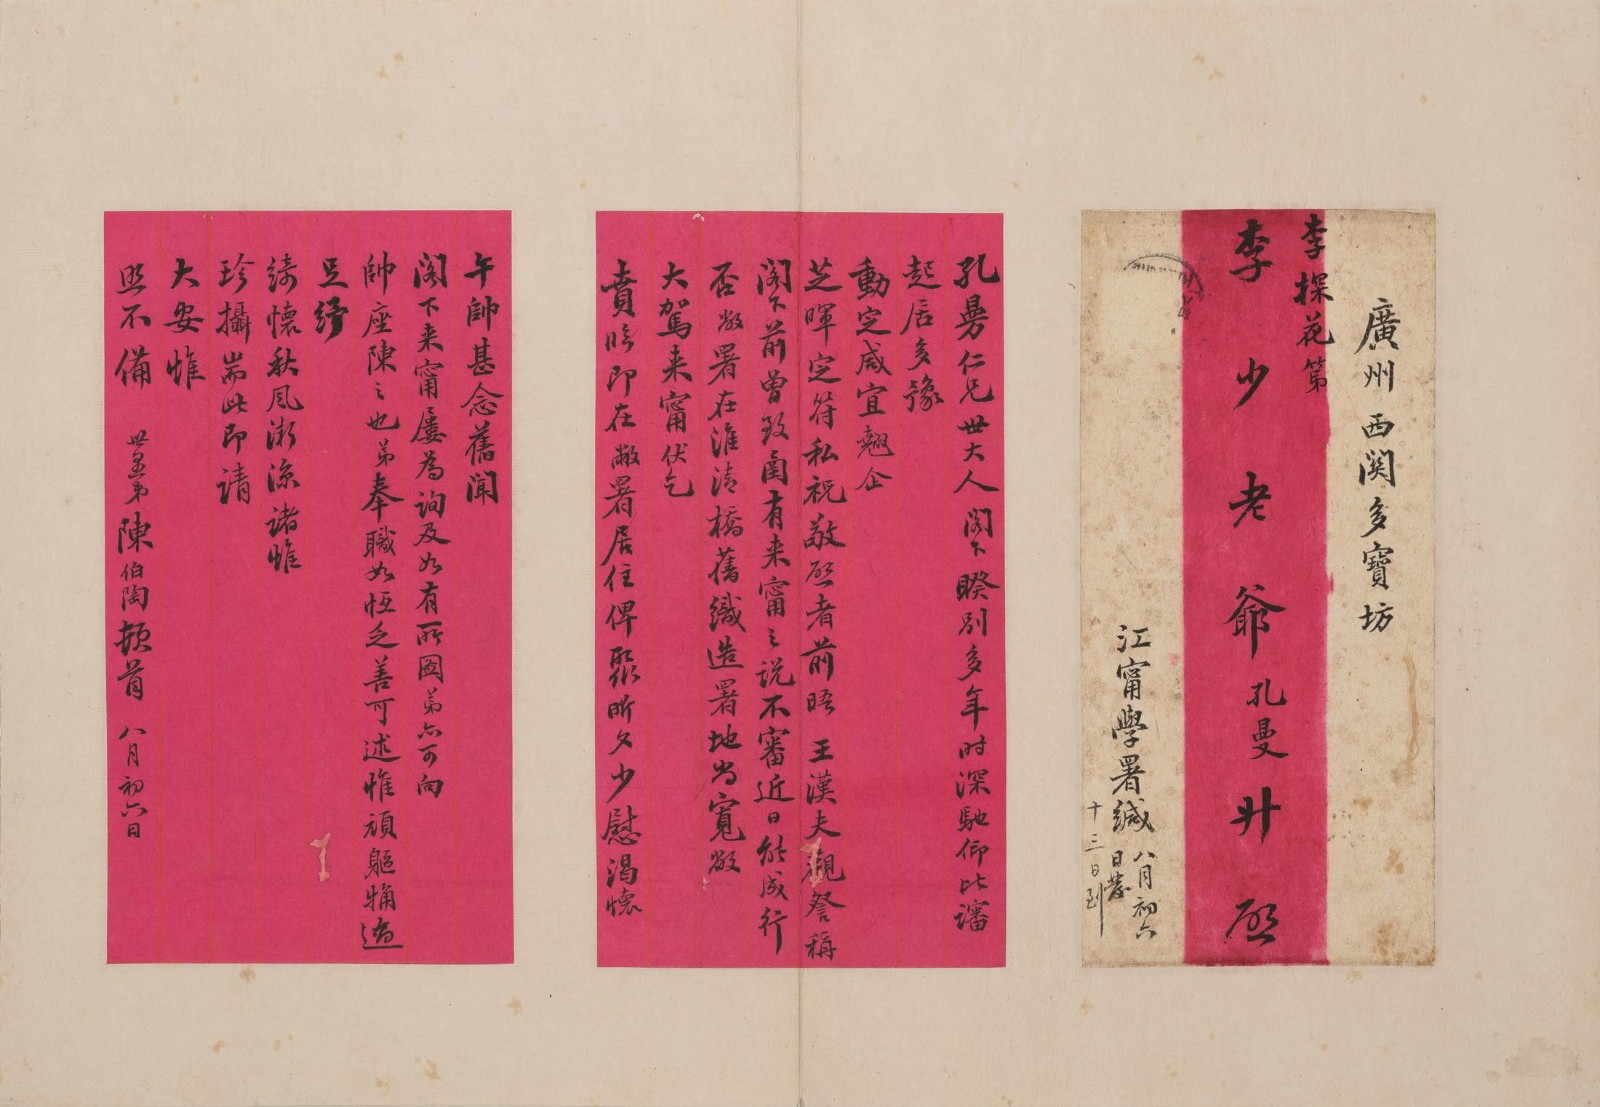 廣州西関多寶坊
李探花第
李少老爺孔曼升啟
江甯學署緘
八月初六
日發
十三日到
孔曼仁兄世大人閣下睽別多年時深馳仰比審
起居多豫
動定咸宜翹企
芝暉定符私祝敬啟者前晤王漢夫觀詧稱
閣下前曾致函有來甯之說不審近日能成行
否敝署在淮清橋舊織造署地尚寬敞
大駕來甯伏乞
賁臨即在敝署居住俾聚昕夕少慰渴懷
午帥甚念舊聞
閣下来甯屢為詢及如有所圖弟亦可向
帥座陳之也弟奉職如恆乏善可述惟頑軀觕適
足紓
綺懷秋風漸涼諸惟
珍攝耑此即請
大安惟
照不備
世愚弟陳伯陶頓首
八月初六日